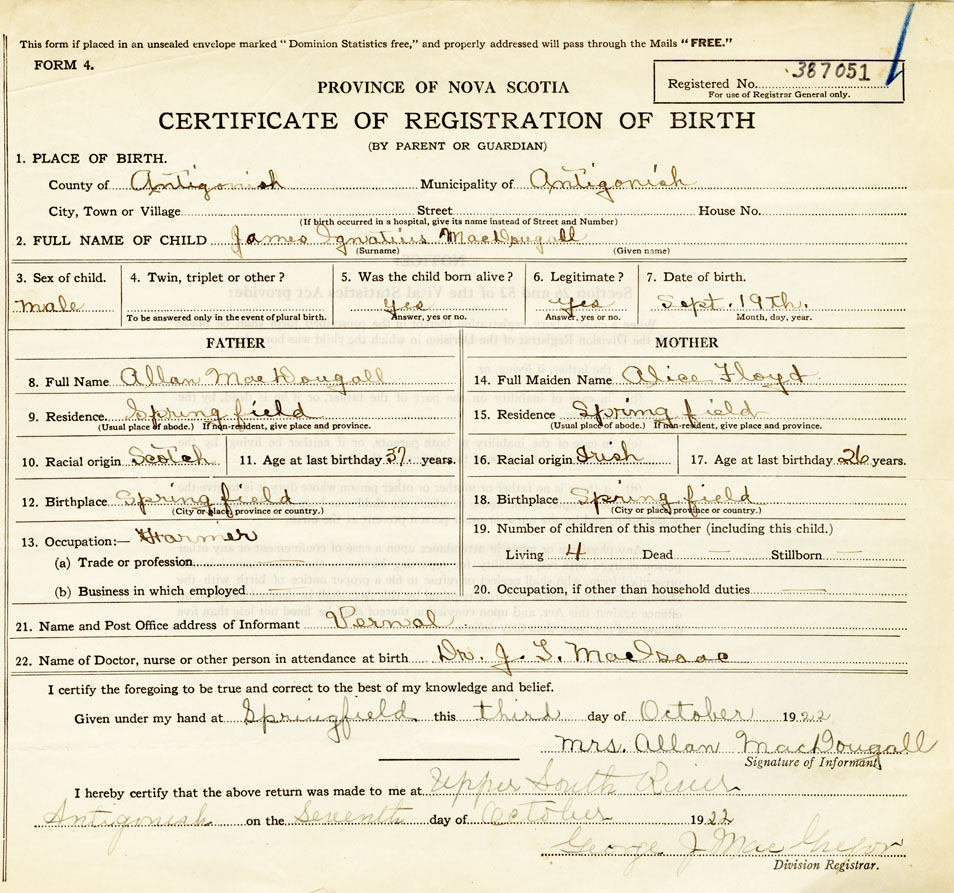 This form if placed in an unsealed envelope marked "Dominion Statistics free," and properly addressed will pass through the Mails "FREE."
FORM 4.
Registered No. 387051
For use of Registrar General only.
PROVINCE OF NOVA SCOTIA
CERTIFICATE OF REGISTRATION OF BIRTH
(BY PARENT OR GUARDIAN)
1. PLACE OF BIRTH.
County of Antigonish Municipality of Antigonish
City, Town or Village Street House No.
(If birth occurred in a hospital, give its name instead of Street and Number)
2. FULL NAME OF CHILD James Ignatius MacDougall
(Surname) (Given name)
3. Sex of child. 4. Twin, triplet or other? 5. Was the child born alive? 6. Legitimate? 7. Date of birth.
male yes yes Sept. 19th.
To be answered only in the event of plural birth. Answer, yes or no. Answer, yes or no. Month, day, year.
FATHER
8. Full Name Allan MacDougall
9. Residence Springfield
(Usual place of abode.) If non-resident, give place and province.
10. Racial origin Scotch 11. Age at last birthday 37 years.
12. Birthplace Springfield
(City or place, province or country.)
13. Occupation:— Farmer
(a) Trade or profession
(b) Business in which employed
MOTHER
14. Full Maiden Name Alice Floyd
15. Residence Springfield
(Usual place of abode.) If non-resident, give place and province.
16. Racial origin Irish 17. Age at last birthday 26 years.
18. Birthplace Springfield
(City or place, province or country.)
19. Number of children of this mother (including this child.)
Living 4 Dead — Stillborn —
20. Occupation, if other than household duties —
21. Name and Post Office address of Informant Vernal
22. Name of Doctor, nurse or other person in attendance at birth Dr. J. L. MacIsaac
I certify the foregoing to be true and correct to the best of my knowledge and belief.
Given under my hand at Springfield this third day of October 1922
Mrs. Allan MacDougall
Signature of Informant
I hereby certify that the above return was made to me at Upper South River
Antigonish on the Seventh day of October 1922
George J MacGregor
Division Registrar.